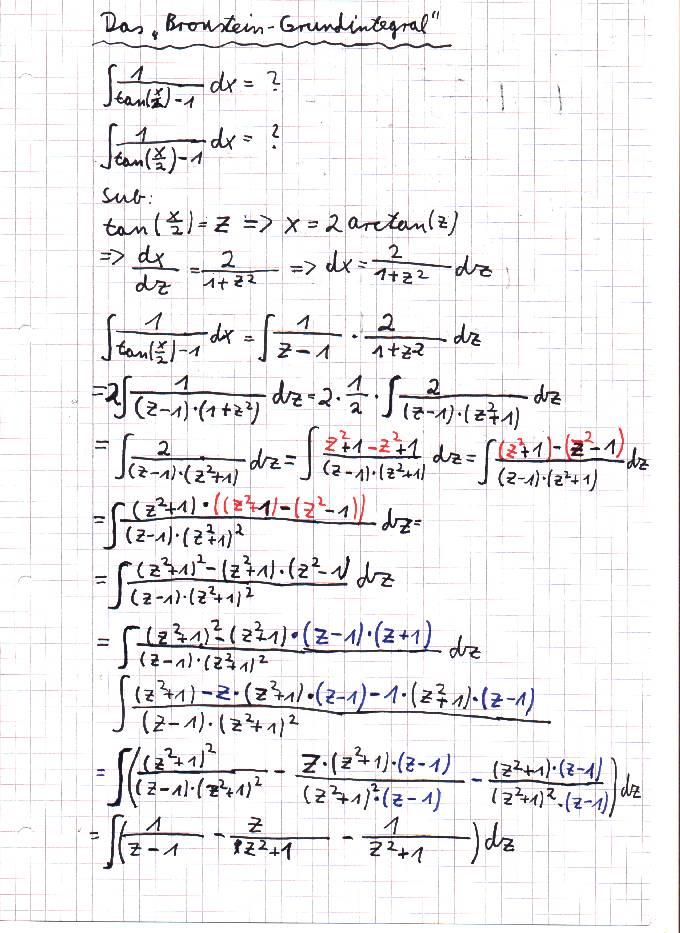 Das „Bronstein-Grundintegral"
∫ 1/(tan(x/2)-1) dx = ?
∫ 1/(tan(x/2)-1) dx = ?
sub:
tan(x/2) = z => x = 2 arctan(z)
=> dx/dz = 2/(1+z²) => dx = 2/(1+z²) dz
∫ 1/(tan(x/2)-1) dx = ∫ 1/(z-1) · 2/(1+z²) dz
= 2∫ 1/((z-1)·(1+z²)) dz = 2·1/2·∫ 2/((z-1)·(z²+1)) dz
= ∫ 2/((z-1)·(z²+1)) dz = ∫ (z²+1-z²+1)/((z-1)·(z²+1)) dz = ∫ ((z²+1)-(z²-1))/((z-1)·(z²+1)) dz
= ∫ ((z²+1)·((z²+1)-(z²-1)))/((z-1)·(z²+1)²) dz =
= ∫ ((z²+1)²-(z²+1)·(z²-1))/((z-1)·(z²+1)²) dz
= ∫ ((z²+1)²-(z²+1)·(z-1)·(z+1))/((z-1)·(z²+1)²) dz
∫ ((z²+1)-z·(z²+1)·(z-1)-1·(z²+1)·(z-1))/((z-1)·(z²+1)²)
= ∫( (z²+1)²/((z-1)·(z²+1)²) - z·(z²+1)·(z-1)/((z²+1)²·(z-1)) - (z²+1)·(z-1)/((z²+1)²·(z-1)) ) dz
= ∫( 1/(z-1) - z/(z²+1) - 1/(z²+1) ) dz